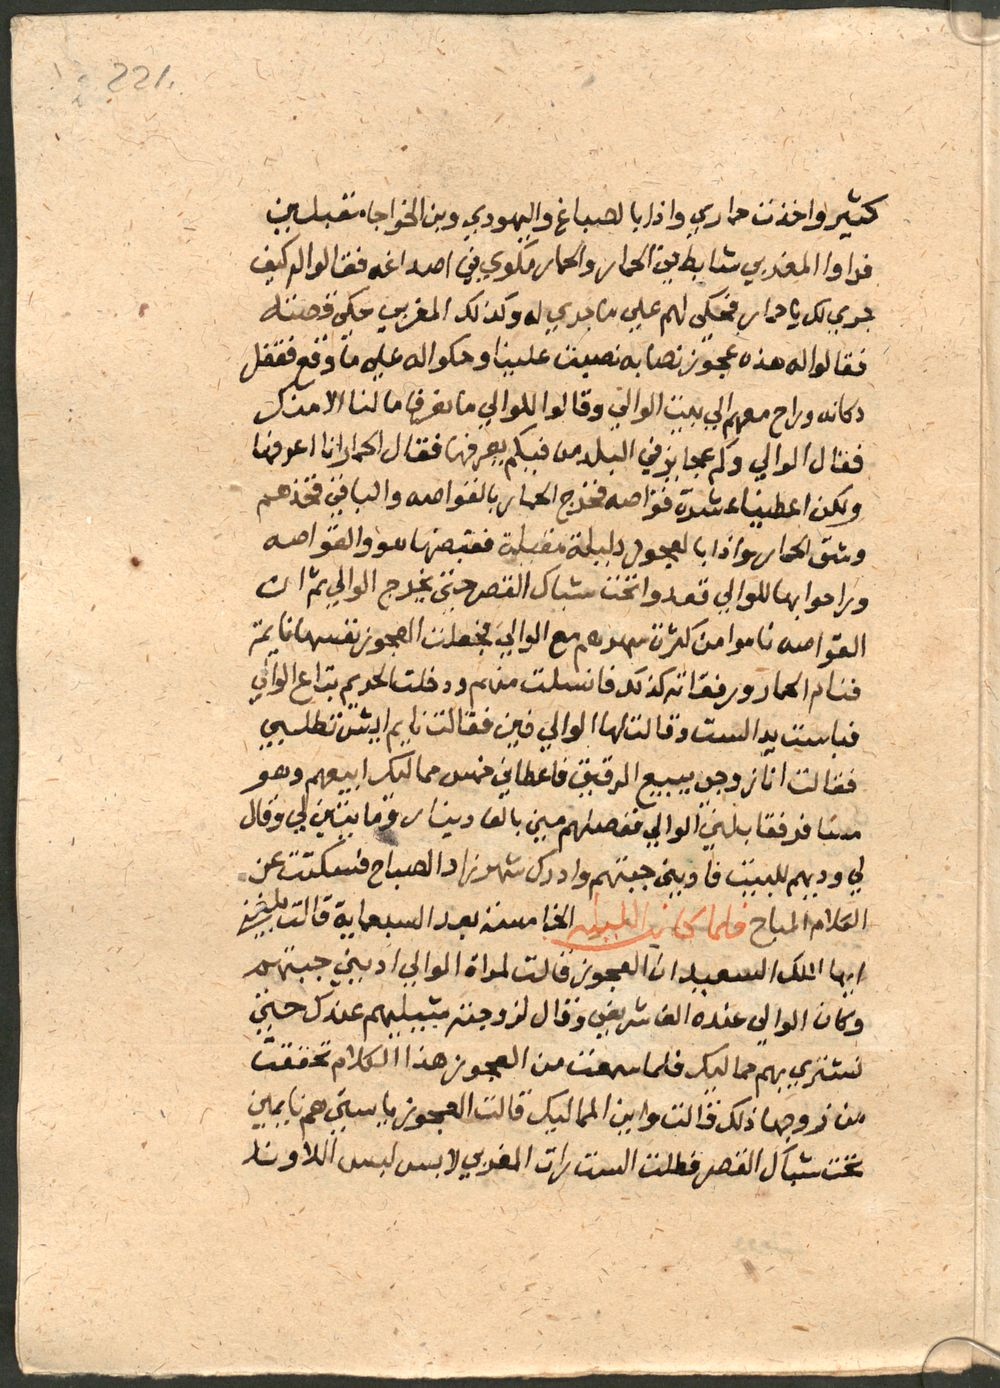 221.
كثير واخذت حماري واذا بالصباغ واليهودي وبن الخواجا مقبلين
فراوا المغربي شابط في الحمار والحمار مكوي في اصداغه فقالوا له كيف
جري لك يا حمار فحكى لهم علي ما جري له وكذلك المغربي حكى قصته
فقالوا له هذه عجوز نصابه نصبت علينا وحكوا له عليه ما وقع فقفل
دكانه وراح معهم الي بيت الوالي وقالوا للوالي ما نعرفها ما لنا الا منك
فقال الوالي وكم عجايز في البلد من فيكم يعرفها فقال الحمار انا اعرفها
ولكن اعطينا عشرة قواصه فخرج الحمار بالقواصه والباقي تخدهم
وشق الحمار واذا بالعجوز دليلة مقبلة فقبضها هو والقواصه
وراحوا بها للوالي قعدوا تحت شباك القصر حتى يخرج الوالي ثم ان
القواصه ناموا من كثرة سهرهم مع الوالي فجعلت العجوز نفسها نايمة
فنام الحمار ورفقاته كذلك فانسلت منهم ودخلت لحريم بتاع الوالي
فباست يد الست وقالت لها الوالي فين فقالت نايم ايش تطلبي
فقالت انا زوجي يبيع الرقيق فاعطاني خمس مماليك ابيعهم وهو
مسافر فقابلني الوالي ففصلهم مني بالف دينار وميتين لي وقال
لي وديهم للبيت فاديني جبتهم وادرك شهرزاد الصباح فسكتت عن
الكلام المباح فلما كانت الليلة الخامسة بعد السبعماية قالت بلغني
ايها الملك السعيد ان العجوز قالت لمراة الوالي اديني جبتهم
وكان الوالي عنده الف شريفي وقال لزوجته شيليهم عندك حتى
نشتري بهم مماليك فلما سمعت من العجوز هذا الكلام تحققت
من زوجها ذلك قالت واين المماليك قالت العجوز يا ستي هم نايمين
تحت شباك القصر فطلت الست رات المغربي لابس لبس